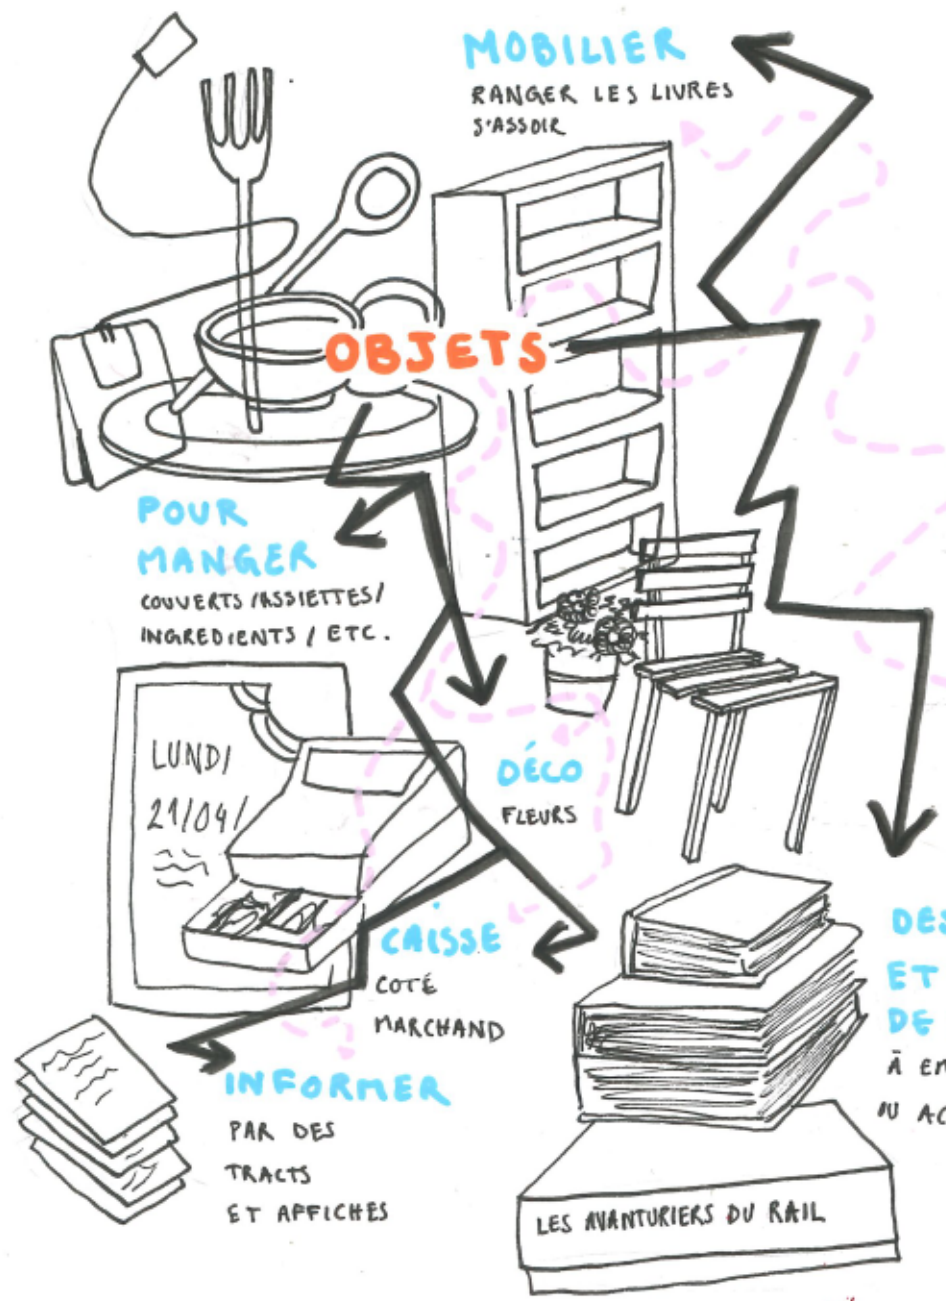 MOBILIER
RANGER LES LIVRES
S'ASSOIR
OBJETS
POUR
MANGER
COUVERTS/ASSIETTES/
INGREDIENTS / ETC.
LUNDI
21/04/
DÉCO
FLEURS
CAISSE
COTÉ
MARCHAND
DES
ET
DE
À EM
OU AC
INFORMER
PAR DES
TRACTS
ET AFFICHES
LES AVANTURIERS DU RAIL